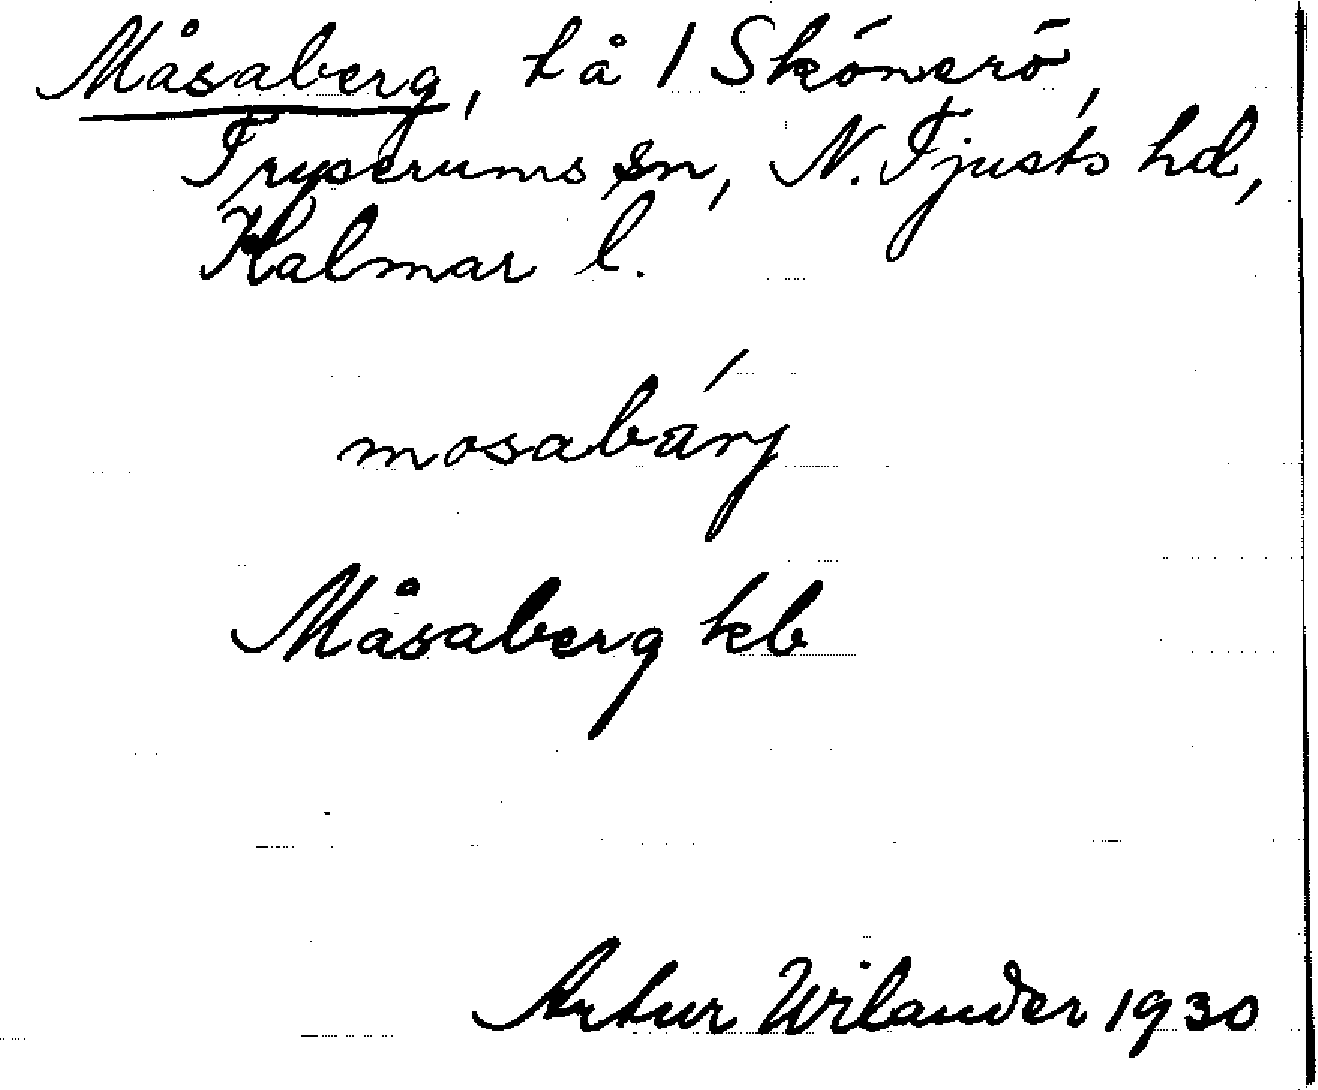 Måsaberg, hå / Skönerö,
Tryserums sn, N. Tjusts hd,
Kalmar l.
mosabárj
Måsaberg kb
Artur Wilander 1930